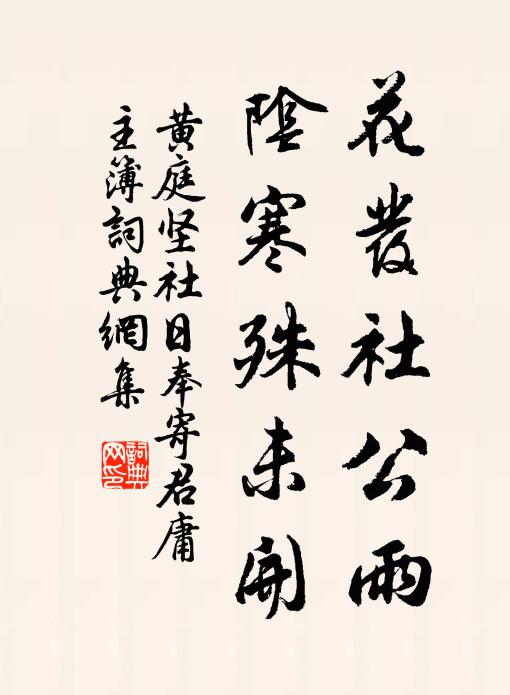 花發社公雨
陰寒殊未開
黃庭坚社日奉寄君庸
主簿詞典網集
詞典
网印